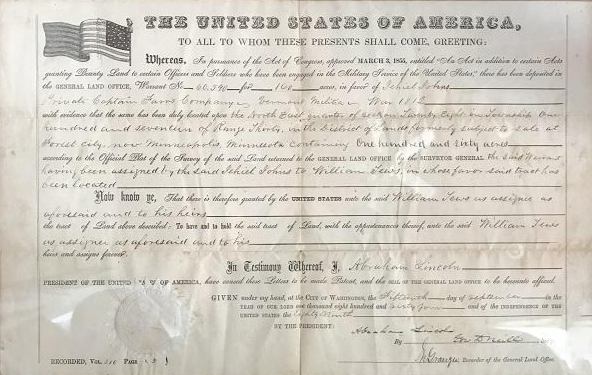 THE UNITED STATES OF AMERICA,
TO ALL TO WHOM THESE PRESENTS SHALL COME, GREETING:
Whereas, In pursuance of the Act of Congress, approved MARCH 3, 1855, entitled "An Act in addition to certain Acts
granting Bounty Land to certain Officers and Soldiers who have been engaged in the Military Service of the United States," there has been deposited in
the GENERAL LAND OFFICE, Warrant No. 60,390 for 160 acres, in favor of Jehiel Johns
Private Captain Company, Vermont Militia War 1812
with evidence that the same has been duly located upon the North East quarter of section Twenty Eight in Township One
hundred and seventeen of Range Thirty, in the District of Lands formerly subject to sale at
Forest City, now Minneapolis, Minnesota Containing One hundred and sixty acres
according to the Official Plat of the Survey of the said Land returned to the GENERAL LAND OFFICE by the SURVEYOR GENERAL the said Warrant
having been assigned by the said Jehiel Johns to William Tews, in whose favor said tract has
been located
Now know ye, That there is therefore granted by the UNITED STATES unto the said William Tews as assignee as
aforesaid and to his heirs
the tract of Land above described: To have and to hold the said tract of Land, with the appurtenances thereof, unto the said William Tews
as assignee as aforesaid and to his
heirs and assigns forever.
In Testimony Whereof, I, Abraham Lincoln
PRESIDENT OF THE UNITED STATES OF AMERICA, have caused these Letters to be made Patent, and the SEAL OF THE GENERAL LAND OFFICE to be hereunto affixed.
GIVEN under my hand, at the CITY OF WASHINGTON, the fifteenth day of September in the
YEAR OF OUR LORD one thousand eight hundred and sixty four and of the INDEPENDENCE OF THE
UNITED STATES the Eighty Ninth
BY THE PRESIDENT: Abraham Lincoln
By Sec'y
Granger Recorder of the General Land Office.
RECORDED, VOL. PAGE